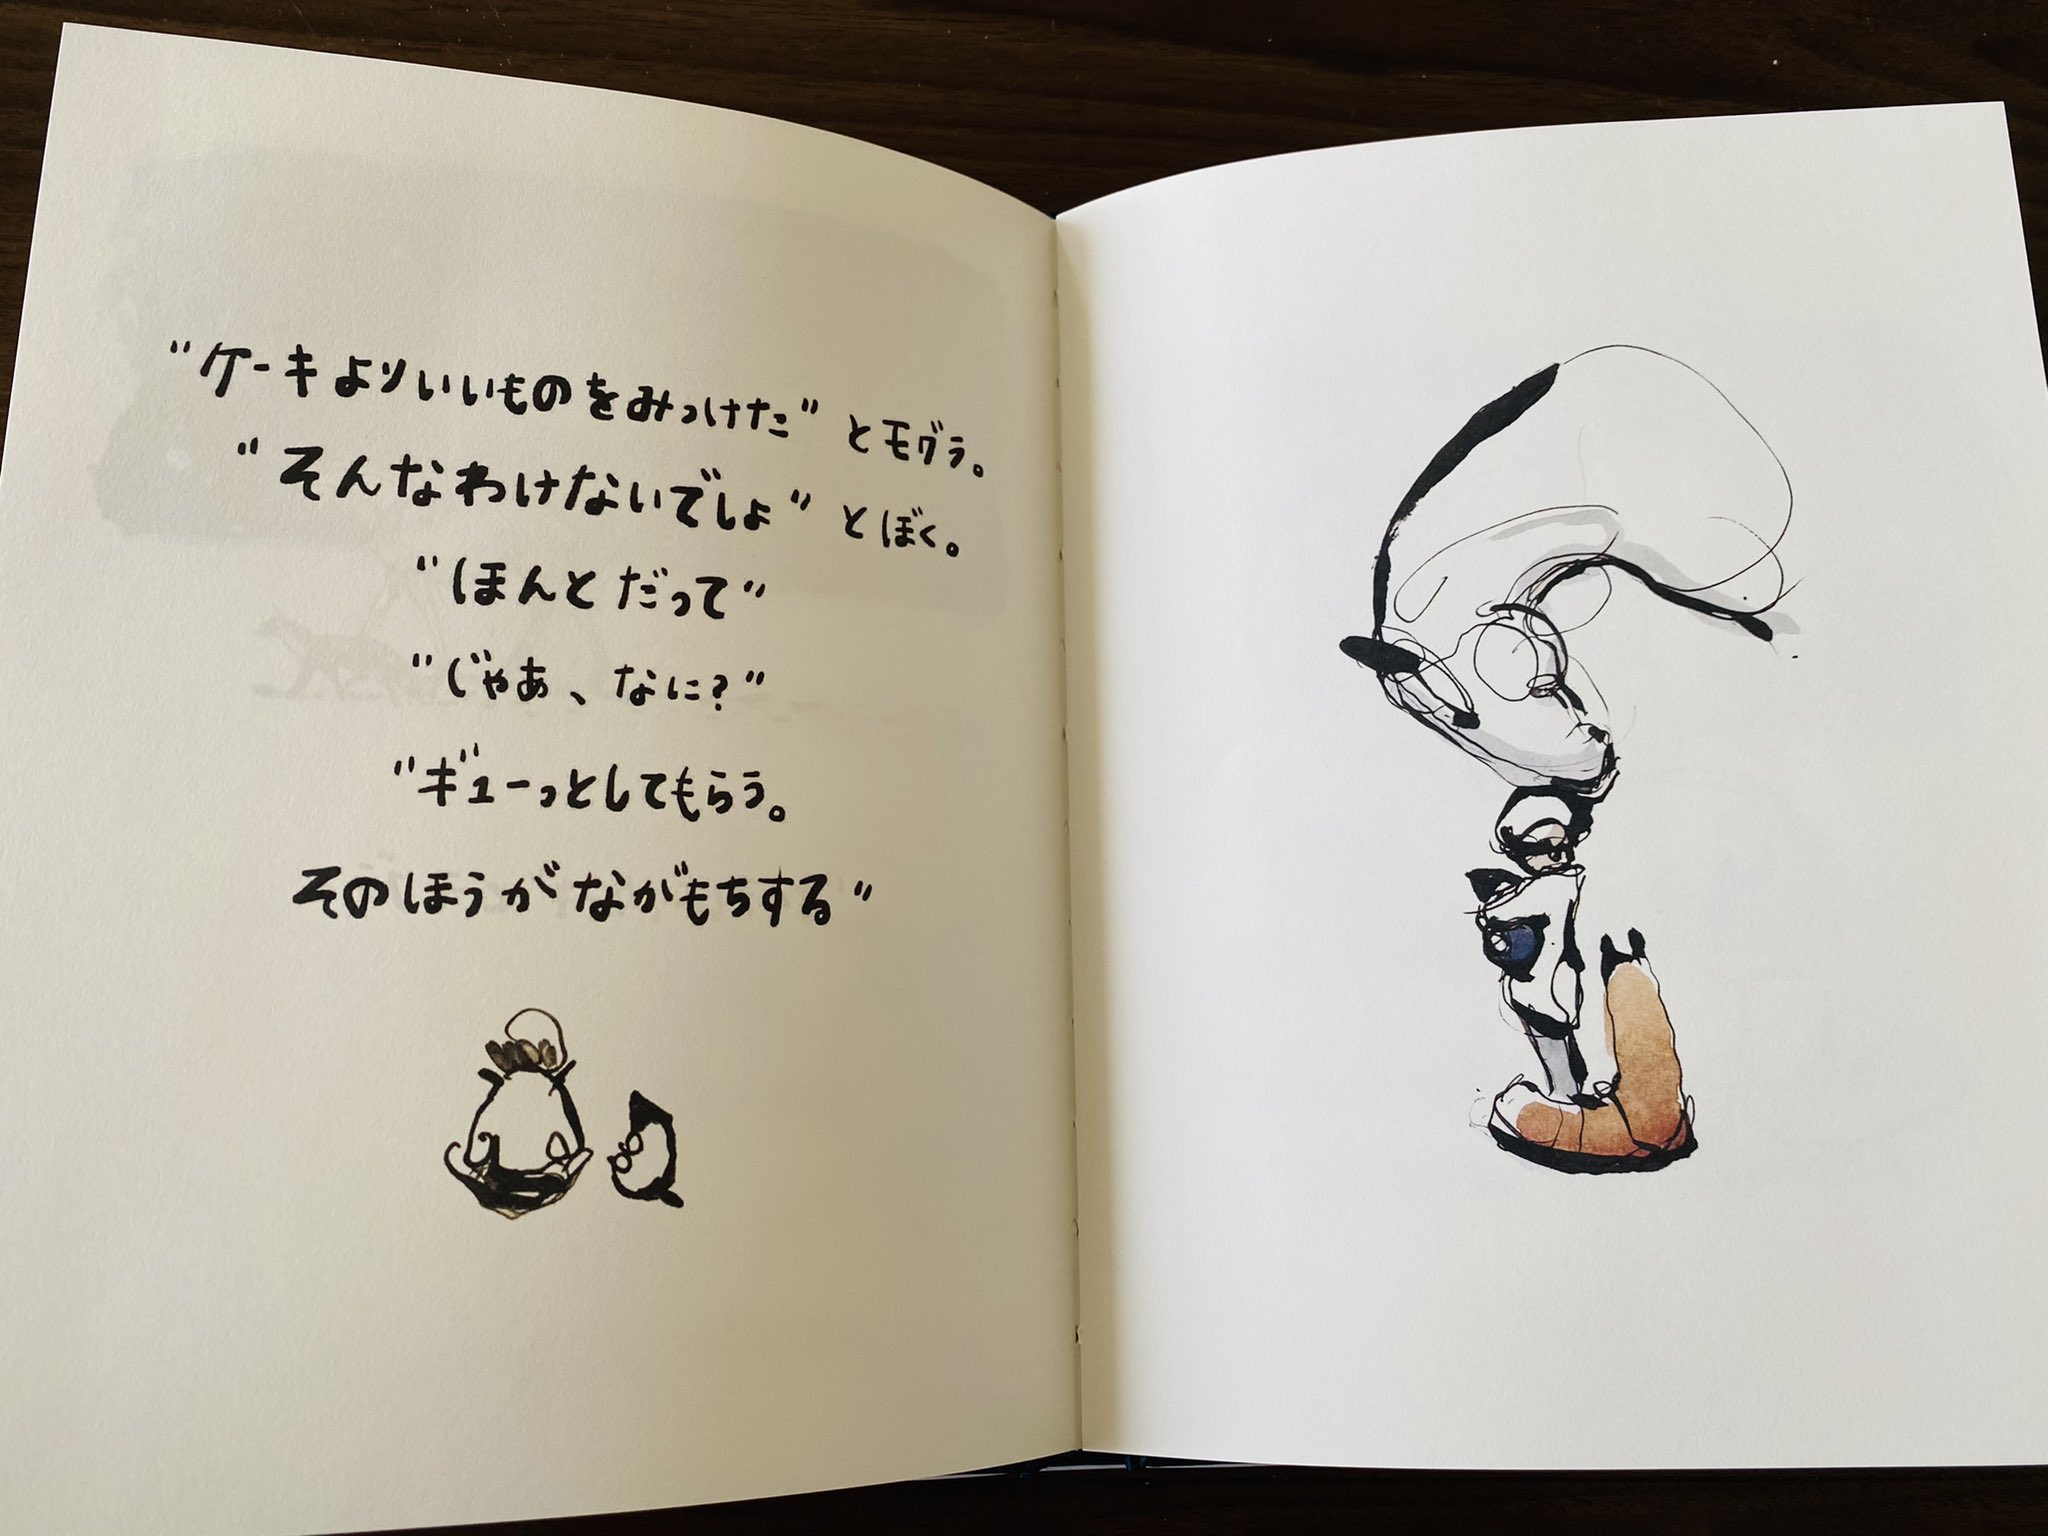 "ケーキよりいいものをみっけた"とモグラ。
"そんなわけないでしょ"とぼく。
"ほんとだって"
"じゃあ、なに?"
"ギューっとしてもらう。
そのほうがながもちする"